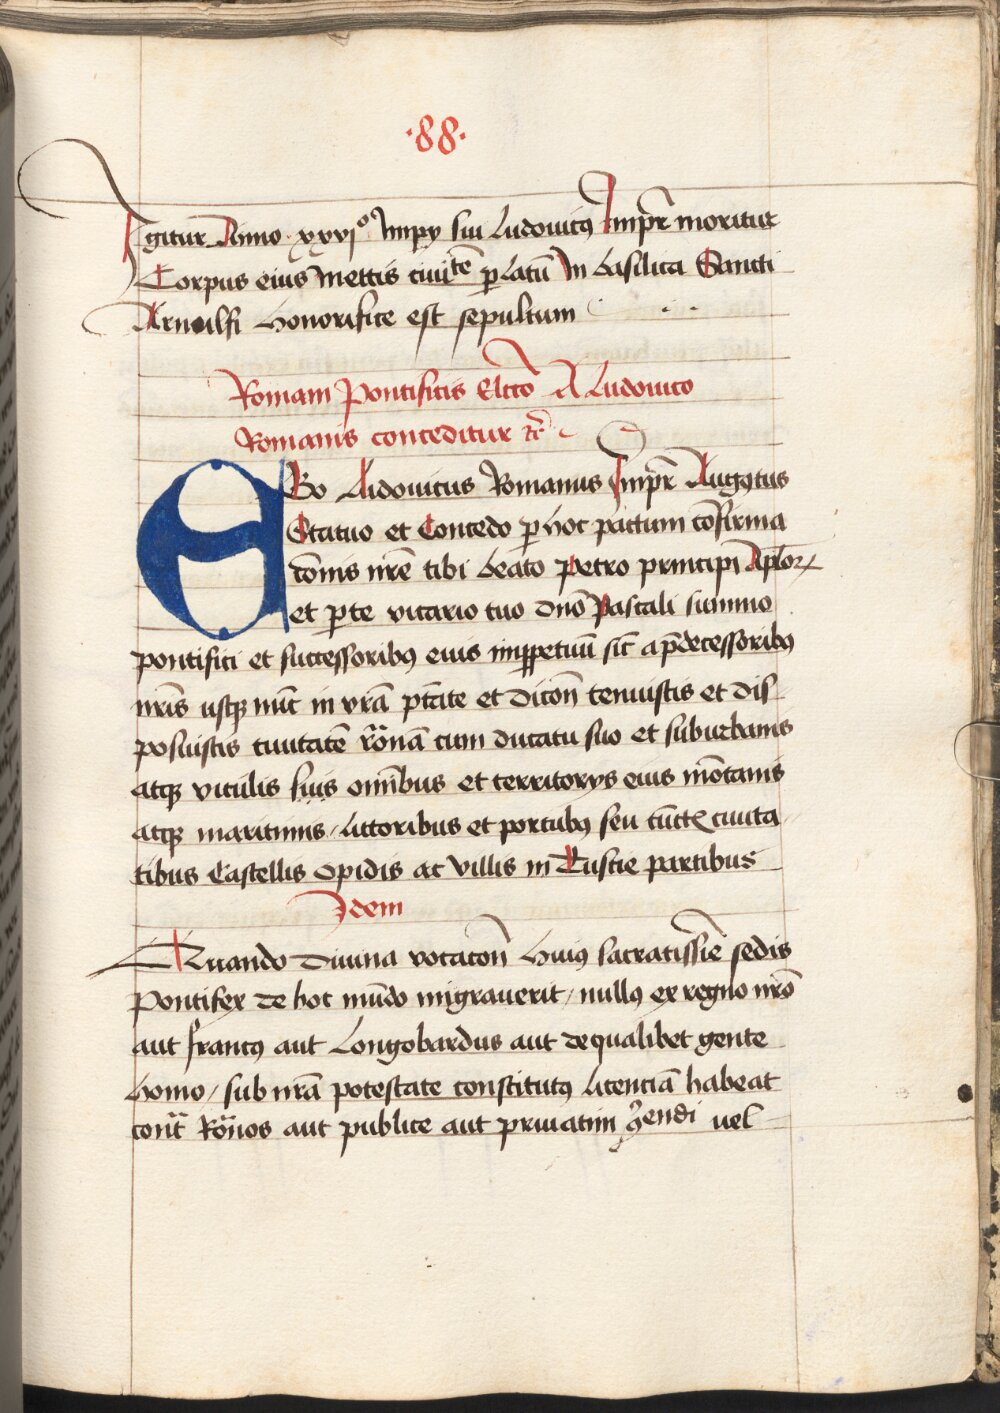 ·88·
Igitur Anno xxvjº Impij sui Ludouicꝰ Impr̄ moritur
Corpus eius Mettis ciuitē ꝑlatū In basilica Sancti
Arnulfi honorifice est sepultum
Romam Pontificis Elc̄cō A Ludouico
Romanis conceditur ꝛc̄
EGo Ludouicus Romanus Impr̄ Augꝰtus
Statuo et Concedo ꝑ hoc pactum cōfirma
cōnis nr̄e tibi beato Petro principi Aplōꝝ
et ꝑ te vicario tuo dnō Pascali summo
pontifici et successoribꝰ eius imꝑpetuū sic̄ a p̄decessoribꝰ
nr̄is usqꝫ nūc in vr̄a ptāte et dicōn tenuistis et dis
posuistis ciuitatē rōnā cum ducatu suo et suburbanis
atqꝫ viculis suis omībus et territorijs eius mōtanis
atqꝫ maritimis / littoribus et portubꝰ seu cūctꝭ ciuita
tibus Castellis opidis ac villis in Tuscie partibus
Idem
Quando Diuina vocacōn huiꝰ sacratissīe sedis
Pontifex de hoc mūdo migrauerit / nullꝰ ex regno nr̄o
aut francꝰ aut Longobardus aut de qualibet gente
homo / sub nr̄a potestate constitutꝰ licenciā habeat
cont̄ Rōnos aut publice aut priuatim ꝯ̄endi vel